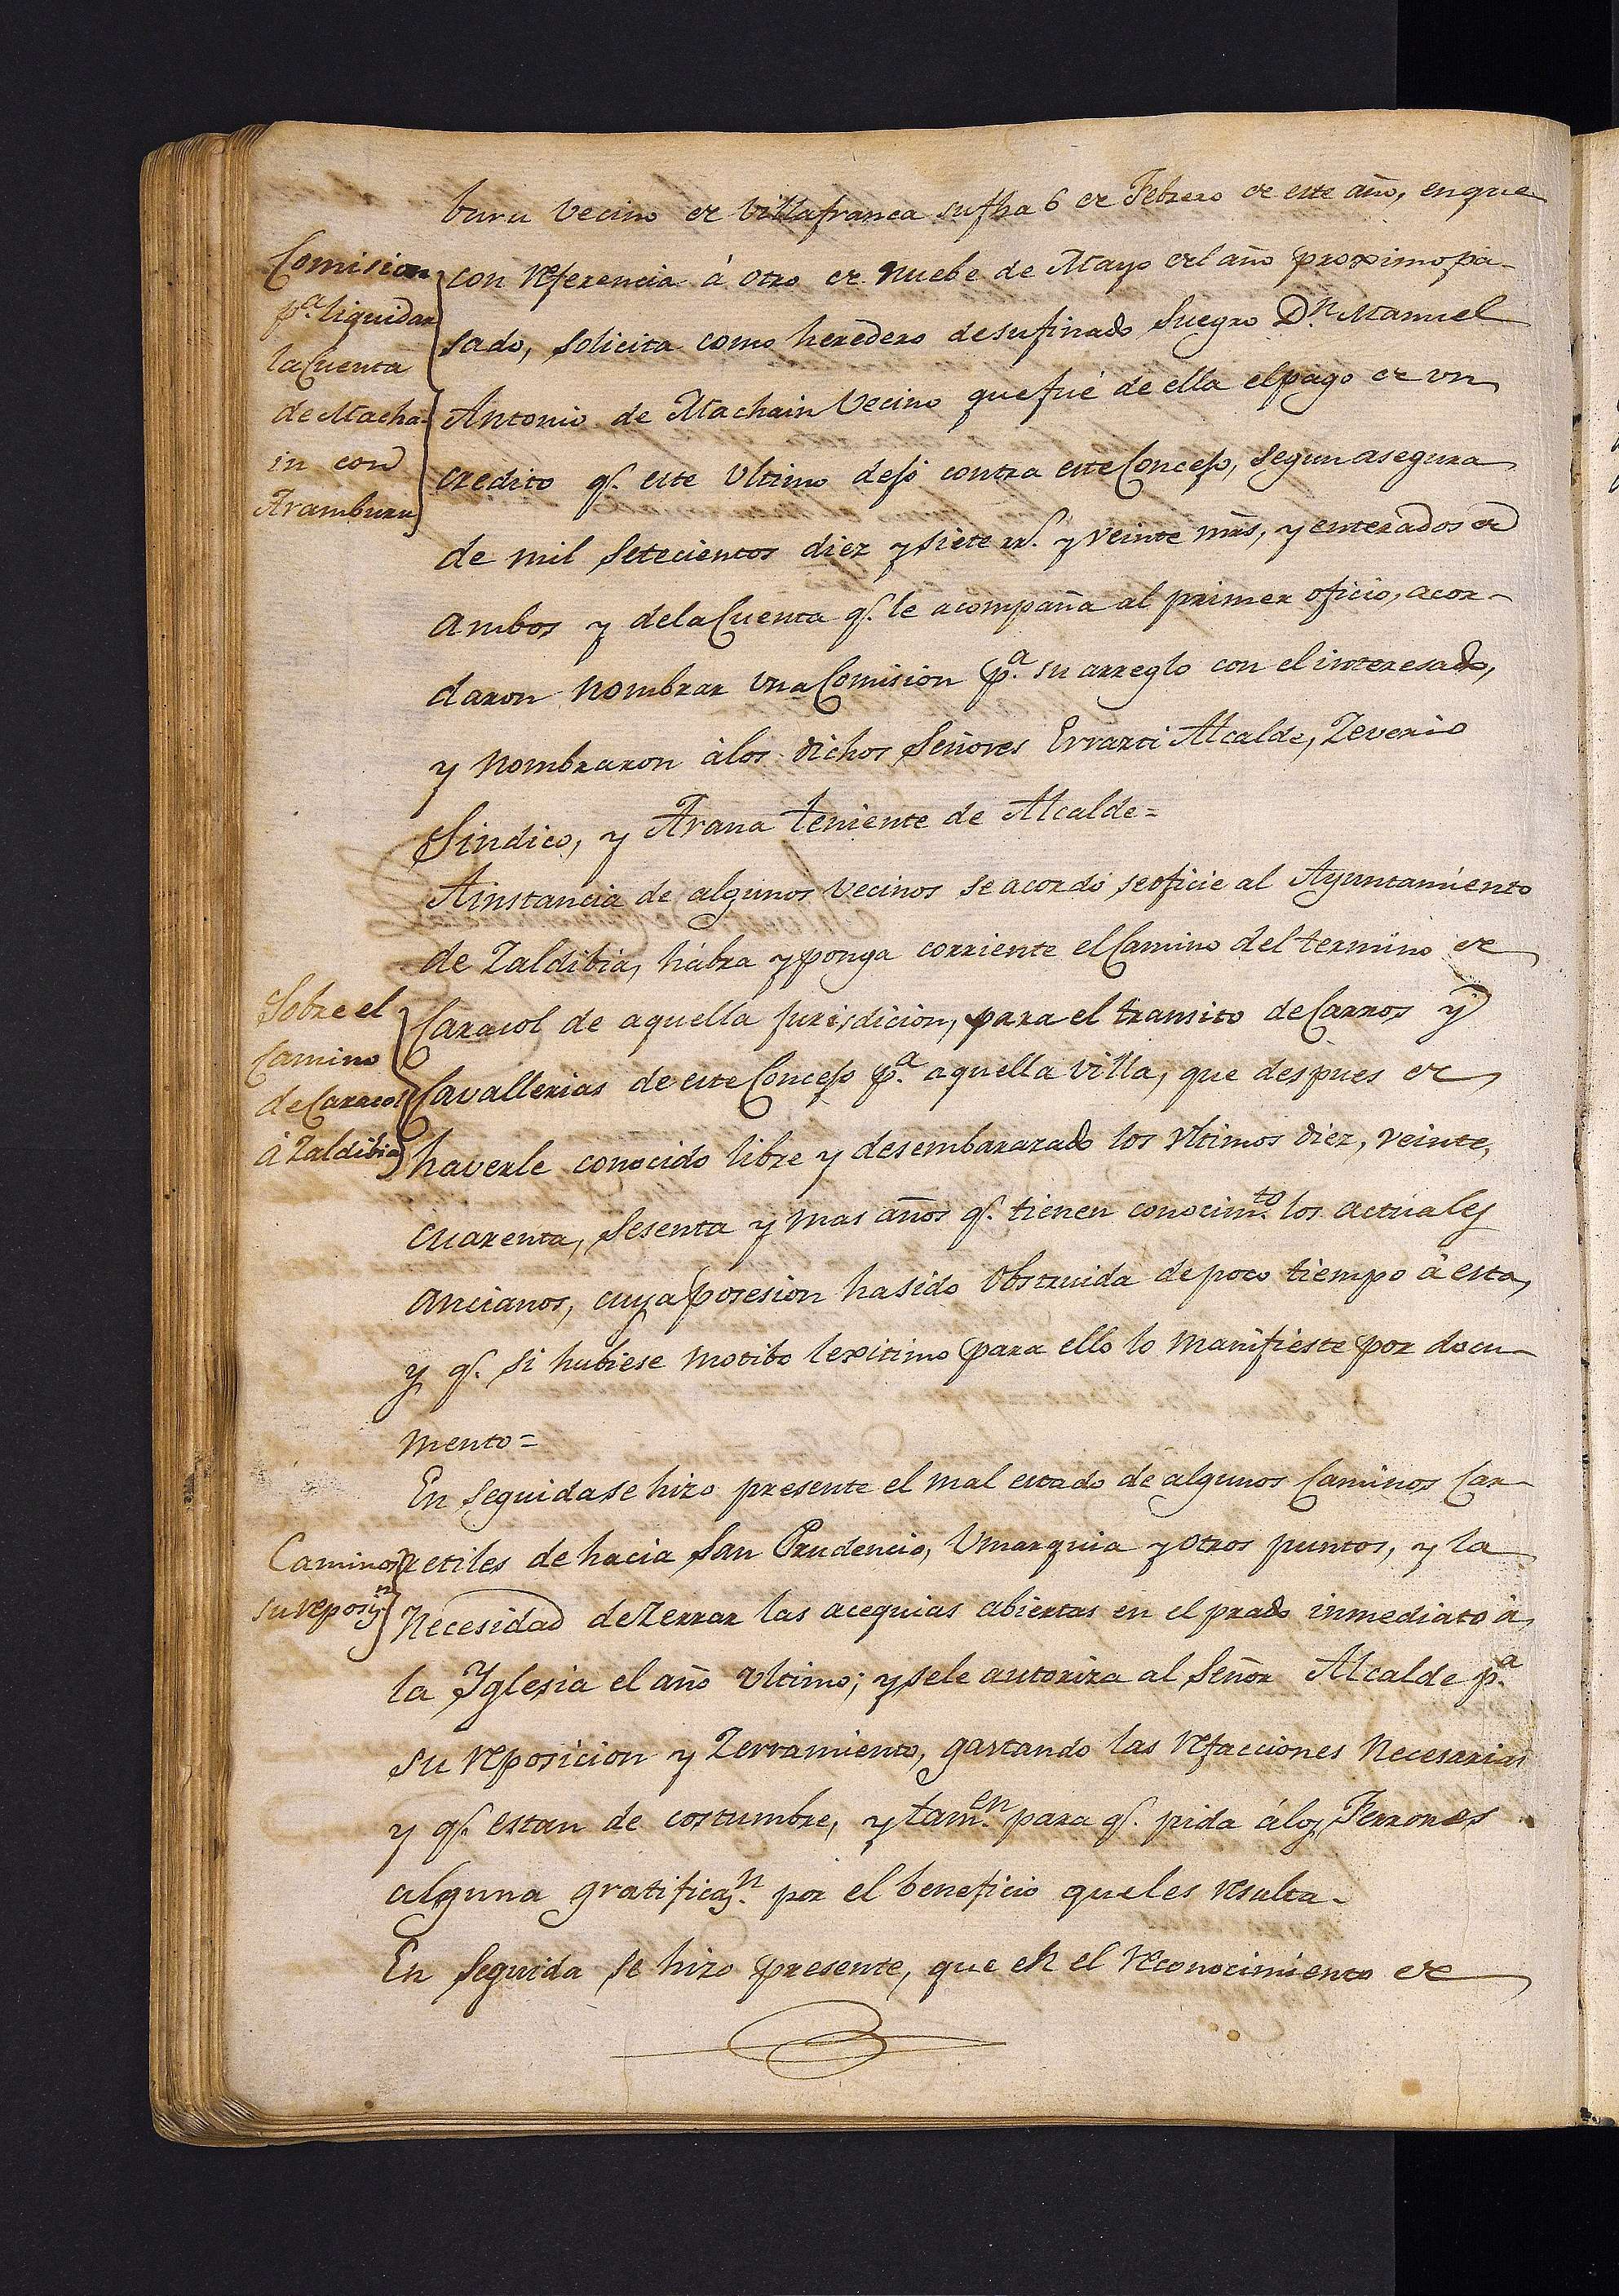 buru vecino de Villafranca su fha 6 de Febrero de este año, en que
Comision
pª liquidar
la Cuenta
de Macha-
in con
Aramburu
con referencia á otro de nuebe de Mayo del año proximo pa-
sado, solicita como heredero de su finado suegro Dn Manuel
Antonio de Machain vecino que fué de ella el pago de un
credito q. este ultimo dejó contra este Concejo, segun asegura
de mil setecientos diez y siete rs. y veinte mrs, y enterados de
ambos y de la Cuenta q. le acompaña al primer oficio, acor-
daron nombrar una Comision pª. su arreglo con el interesado,
y nombraron á los dichos Señores Errazti Alcalde, Zeverio
Sindico, y Arana teniente de Alcalde=
A instancia de algunos vecinos se acordó se oficie al Ayuntamiento
de Zaldibia, habra y ponga corriente el Camino del termino de
Sobre el
Camino
de Caracol
á Zaldibia
Caracol de aquella jurisdicion, para el transito de Carros y
Cavallerias de este Concejo pª. aquella villa, que despues de
haverle conocido libre y desembarazado los ultimos diez, veinte,
cuarenta, sesenta y mas años q. tienen conocimto. los actuales
ancianos, cuya posesion ha sido obstruida de poco tiempo á esta,
y q. si hubiese motibo lexitimo para ello lo manifieste por docu-
mento=
En seguida se hizo presente el mal estado de algunos Caminos Car-
Caminos
su reposn
retiles de hacia San Prudencio, Umarquia y otros puntos, y la
necesidad de zerrar las acequias abiertas en el prado inmediato á
la Yglesia el año ultimo; y se le autoriza al Señor Alcalde pª.
su reposicion y zerramiento, gastando las refacciones necesarias
y q. estan de costumbre, y tamen. para q. pida á los Ferrones
alguna gratificasn. por el beneficio que les resulta.
En seguida se hizo presente, que en el reconocimiento de